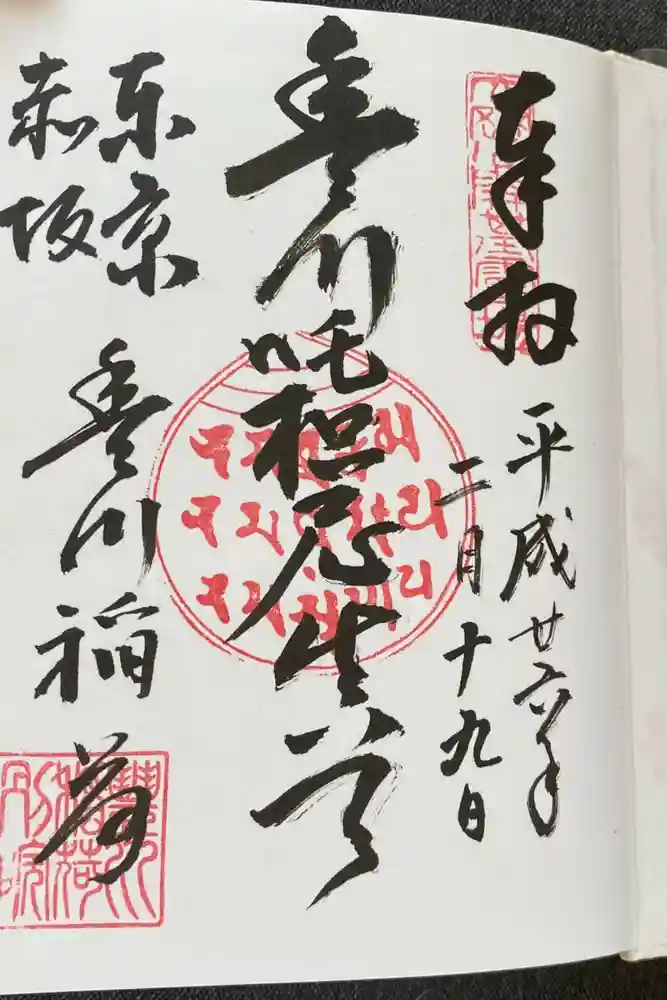 奉拝
平成廿六年
二月十九日
豊川吒枳尼真天
東京
赤坂
豊川稲荷
豐川
稲荷
別院